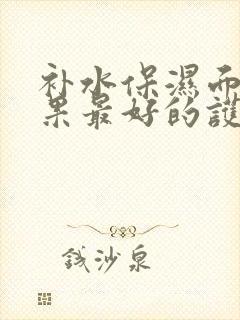 补水保濕而
果最好的護
錢沙泉